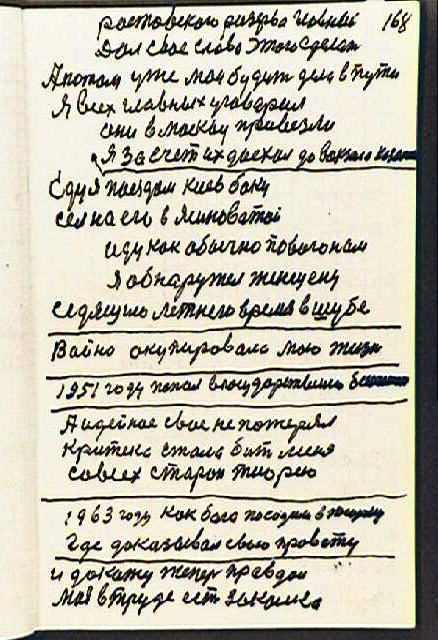 168
ростовского разъезда главный
Дал свое слово этого сделат
А потом уже моя будит дела в пути
Я всех главных уговорил
они в москву провезли
Я за счет их доехал до вокзала
Еду я поездом киев баку
сел на его в Ясиноватой
иду как обычно по вогонам
Я обнаружел женщену
седящую летнего время в шубе
Война окупировала мою жизн
1951 году попал в государствиную
А идейное свое не потерял
критека стала бит меня
со всех старон тиорею
1963 году как бога посодили в тюрму
Где доказывал свою правоту
и докажу теперь правдои
моя в труде ест